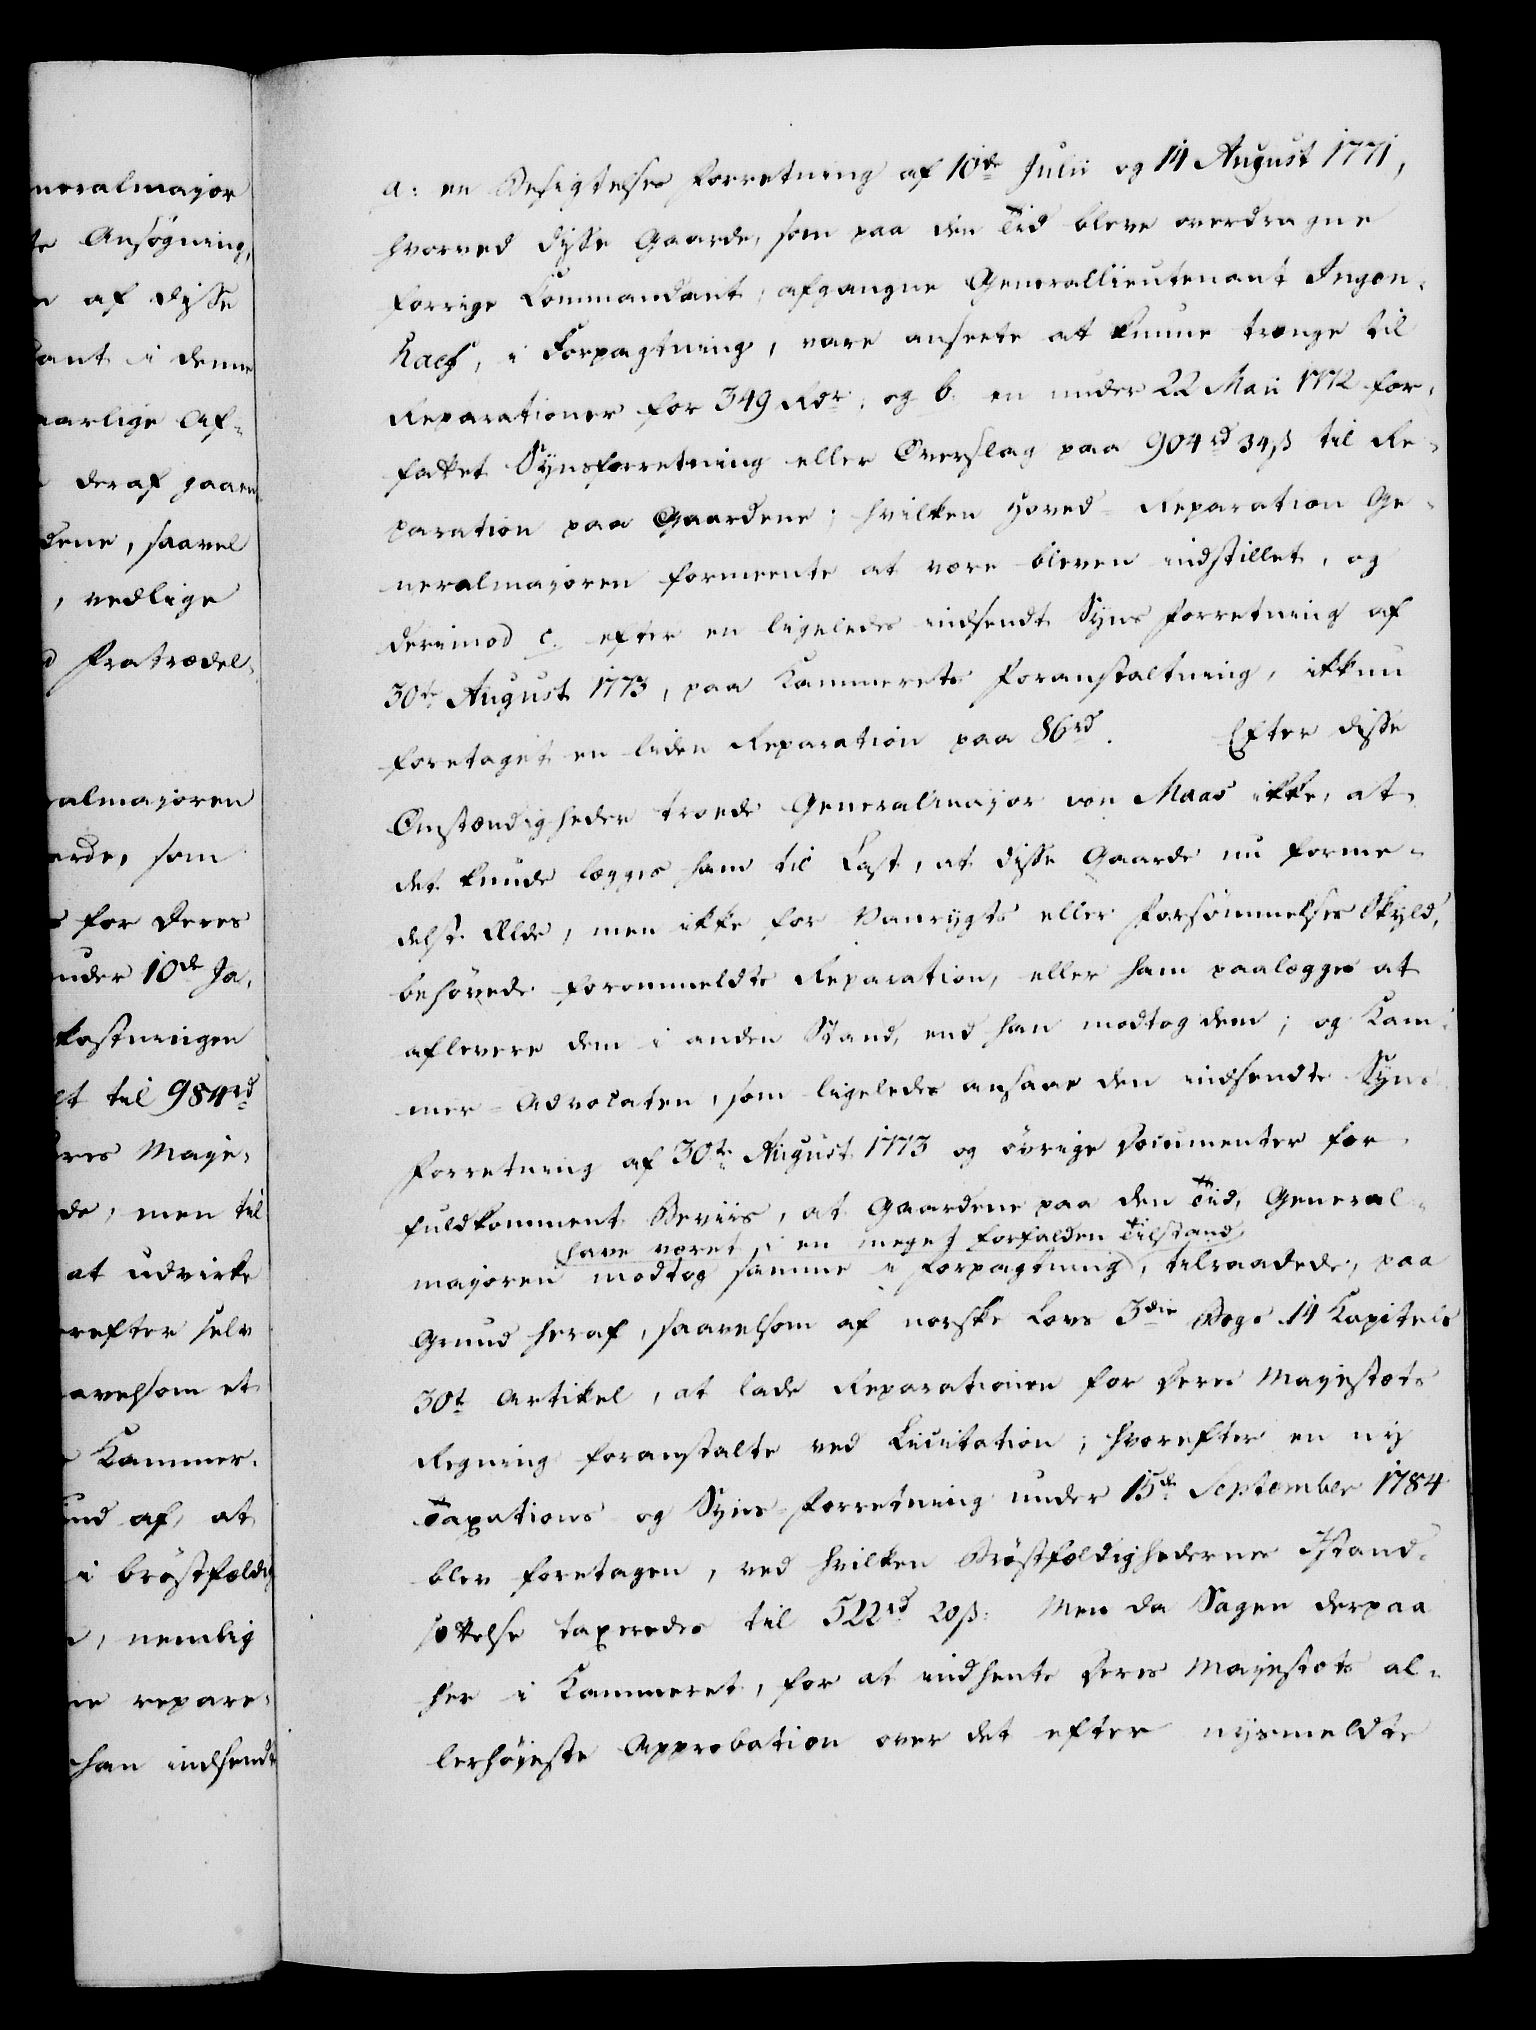 neralmajor
te Ansøgning,
af disse
dant i denne
aarlige Af-
deraf gaaen
dene, saavel
, vedlige
d Fratrædel-
ralmajoren
arde, som
for Deres
under 10de Ja-
kostningen
lt til 984rd
res Maje-
de, men til
at udvirke
refter selv
avelsom et
Kammer-
und af, at
i brøstfældig
, nemlig
ne repare-
han indsendt
a: en Besigtelses Forretning af 10de Julii og 14 August 1771,
hvorved disse Gaarde, som paa den Tid bleve overdragne
forrige Commandant, afgangne Generallieutenant Ingen-
haef, i Forpagtning, vare ansete at kunne trænge til
Reparationer for 349 Rdr. og b. en under 22 Maii 1772 for-
fattet Synsforretning eller Overslag paa 904rd 34ß til Re-
paration paa Gaardene; hvilken Hoved-Reparation Ge-
neralmajoren formeente at være bleven indstillet, og
derimod c. efter en ligeledes indsendt Syns Forretning af
30te August 1773, paa Kammerets Foranstaltning, ikkun
foretaget en liden Reparation paa 86rd. Efter disse
Omstændigheder troede Generalmajor von Maas ikke, at
det kunde lægges ham til Last, at disse Gaarde nu forme-
delst Ælde, men ikke for Vanrygts eller Forsømmelses Skyld,
behøvede forommeldte Reparation, eller ham paalægges at
aflevere dem i anden Stand, end han modtog dem; og Kam-
mer-Advocaten, som ligeledes ansaae den indsendte Syns
Forretning af 30te August 1773 og øvrige Documenter for
fuldkomment Beviis, at Gaardene paa den Tid, General-
have været i en meget forfalden Tilstand
majoren modtog samme i Forpagtning, tilraadede, paa
Grund heraf, saavelsom af norske Lovs 3die Bogs 14 Kapitels
30te Artikel, at lade Reparationen for Deres Majestæts
Regning foranstalte ved Licitation; hvorefter en ny
Taxations og Syns-Forretning under 15de September 1784
blev foretagen, ved hvilken Brøstfældighedernes Istand-
sættelse taxeredes til 522rd 20ß: Men da Sagen derpaa
her i Kammeret, for at indhente Deres Majestæts al-
lerhøjeste Approbation over det efter nysmeldte